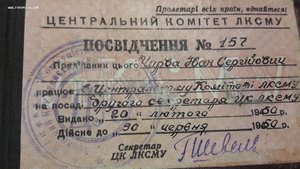 Пролетарі всіх країн, єднайтеся!
ЦЕНТРАЛЬНИЙ КОМІТЕТ ЛКСМУ
ПОСВІДЧЕННЯ № 157
Пред'явник цього Кирва Іван Сергійович
працює в Центральному Комітеті ЛКСМУ
на посаді другого секретаря ЦК ЛКСМУ
Видано „20" лютого 1950 р.
Дійсне до „30" червня 1950 р.
Секретар
ЦК ЛКСМУ